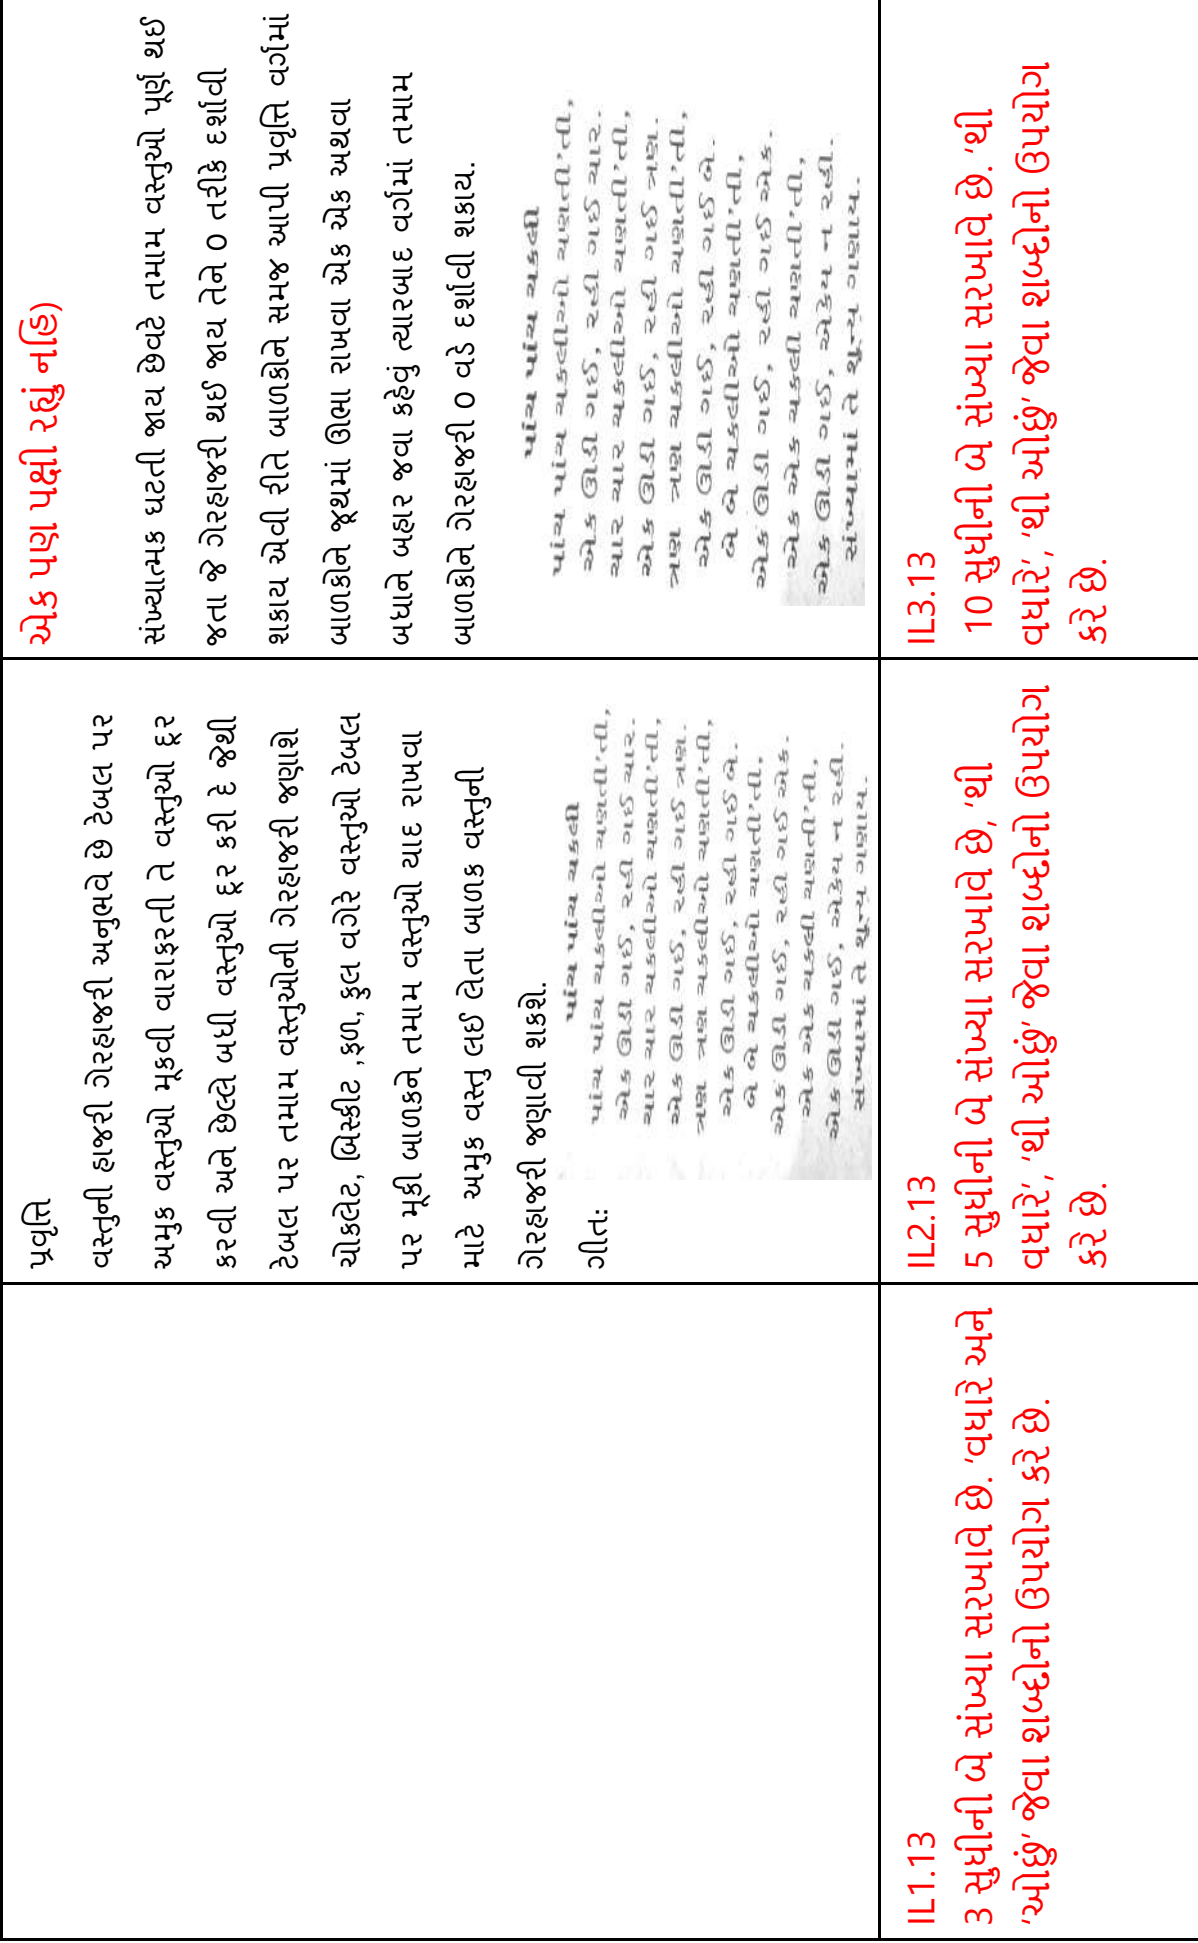 પ્રવૃતિ
વસ્તુની હાજરી ગેરહાજરી અનુભવે છે ટેબલ પર
અમુક વસ્તુઓ મૂકવી વારાફરતી તે વસ્તુઓ દૂર
કરવી અને છેલ્લે બધી વસ્તુઓ દૂર કરી દે જેથી
ટેબલ પર તમામ વસ્તુઓની ગેરહાજરી જણાશે
ચોકલેટ, બિસ્કીટ ,ફળ, ફુલ વગેરે વસ્તુઓ ટેબલ
પર મૂકી બાળકને તમામ વસ્તુઓ યાદ રાખવા
માટે અમુક વસ્તુ લઈ લેતા બાળક વસ્તુની
ગેરહાજરી જણાવી શકશે.
ગીત:
પાંચ પાંચ ચકલી
પાંચ પાંચ ચકલીઓ ચણતી'તી,
એક ઊડી ગઈ, રહી ગઈ ચાર.
ચાર ચાર ચકલીઓ ચણતી'તી,
એક ઊડી ગઈ, રહી ગઈ ત્રણ.
ત્રણ ત્રણ ચકલીઓ ચણતી'તી,
એક ઊડી ગઈ, રહી ગઈ બે.
બે બે ચકલીઓ ચણતી'તી,
એક ઊડી ગઈ, રહી ગઈ એક.
એક એક ચકલી ચણતી'તી,
એક ઊડી ગઈ, એકેય ન રહી.
સંખ્યામાં તે શૂન્ય ગણાય.
એક પણ પક્ષી રહ્યું નહિ)
સંખ્યાત્મક ઘટતી જાય છેવટે તમામ વસ્તુઓ પૂર્ણ થઈ
જતા જે ગેરહાજરી થઈ જાય તેને 0 તરીકે દર્શાવી
શકાય એવી રીતે બાળકોને સમજ આપી પ્રવૃતિ વર્ગમાં
બાળકોને જૂથમાં ઊભા રાખવા એક એક અથવા
બધાને બહાર જવા કહેવું ત્યારબાદ વર્ગમાં તમામ
બાળકોને ગેરહાજરી 0 વડે દર્શાવી શકાય.
પાંચ પાંચ ચકલી
પાંચ પાંચ ચકલીઓ ચણતી'તી,
એક ઊડી ગઈ, રહી ગઈ ચાર.
ચાર ચાર ચકલીઓ ચણતી'તી,
એક ઊડી ગઈ, રહી ગઈ ત્રણ.
ત્રણ ત્રણ ચકલીઓ ચણતી'તી,
એક ઊડી ગઈ, રહી ગઈ બે.
બે બે ચકલીઓ ચણતી'તી,
એક ઊડી ગઈ, રહી ગઈ એક.
એક એક ચકલી ચણતી'તી,
એક ઊડી ગઈ, એકેય ન રહી.
સંખ્યામાં તે શૂન્ય ગણાય.
IL1.13
3 સુધીની બે સંખ્યા સરખાવે છે. 'વધારે અને
'ઓછું' જેવા શબ્દનો ઉપયોગ કરે છે.
IL2.13
5 સુધીની બે સંખ્યા સરખાવે છે, 'થી
વધારે', 'થી ઓછું' જેવા શબ્દનો ઉપયોગ
કરે છે.
IL3.13
10 સુધીની બે સંખ્યા સરખાવે છે. 'થી
વધારે', 'થી ઓછું' જેવા શબ્દનો ઉપયોગ
કરે છે.